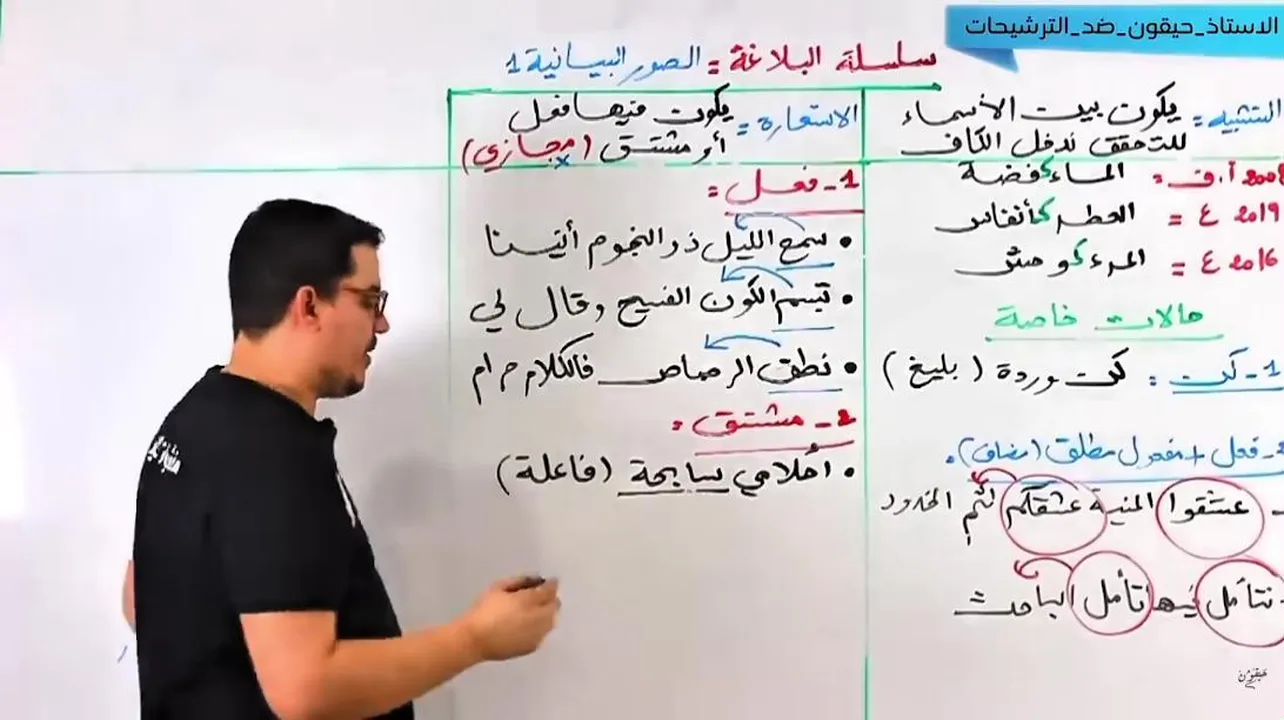 الاستاذ_حيقون_ضد_الترشيحات
سلسلة البلاغة = الصور البيانية 1
التشبيه = يكون بين الأسماء
للتحقق ندخل الكاف
2008 أ.ف = الماء ك فضة
2019 ع = العطر ك أنفاس
2016 ع = المرء ك وحش
حالات خاصة
1- كن = كن وردة (بليغ)
2- فعل + مفعول مطلق (مضاف).
- عشقوا المنية عشقكم لثم الخدود
- نتأمل فيها تأمل الباحث
الاستعارة = يكون فيها فعل
أو مشتق (مجازي)
1- فعل =
• سمع الليل ذو النجوم أنينا
• تبسم الكون الفسيح وقال لي
• نطق الرصاص فالكلام حرام
2- مشتق =
• أحلامي سابحة (فاعلة)
حيقون